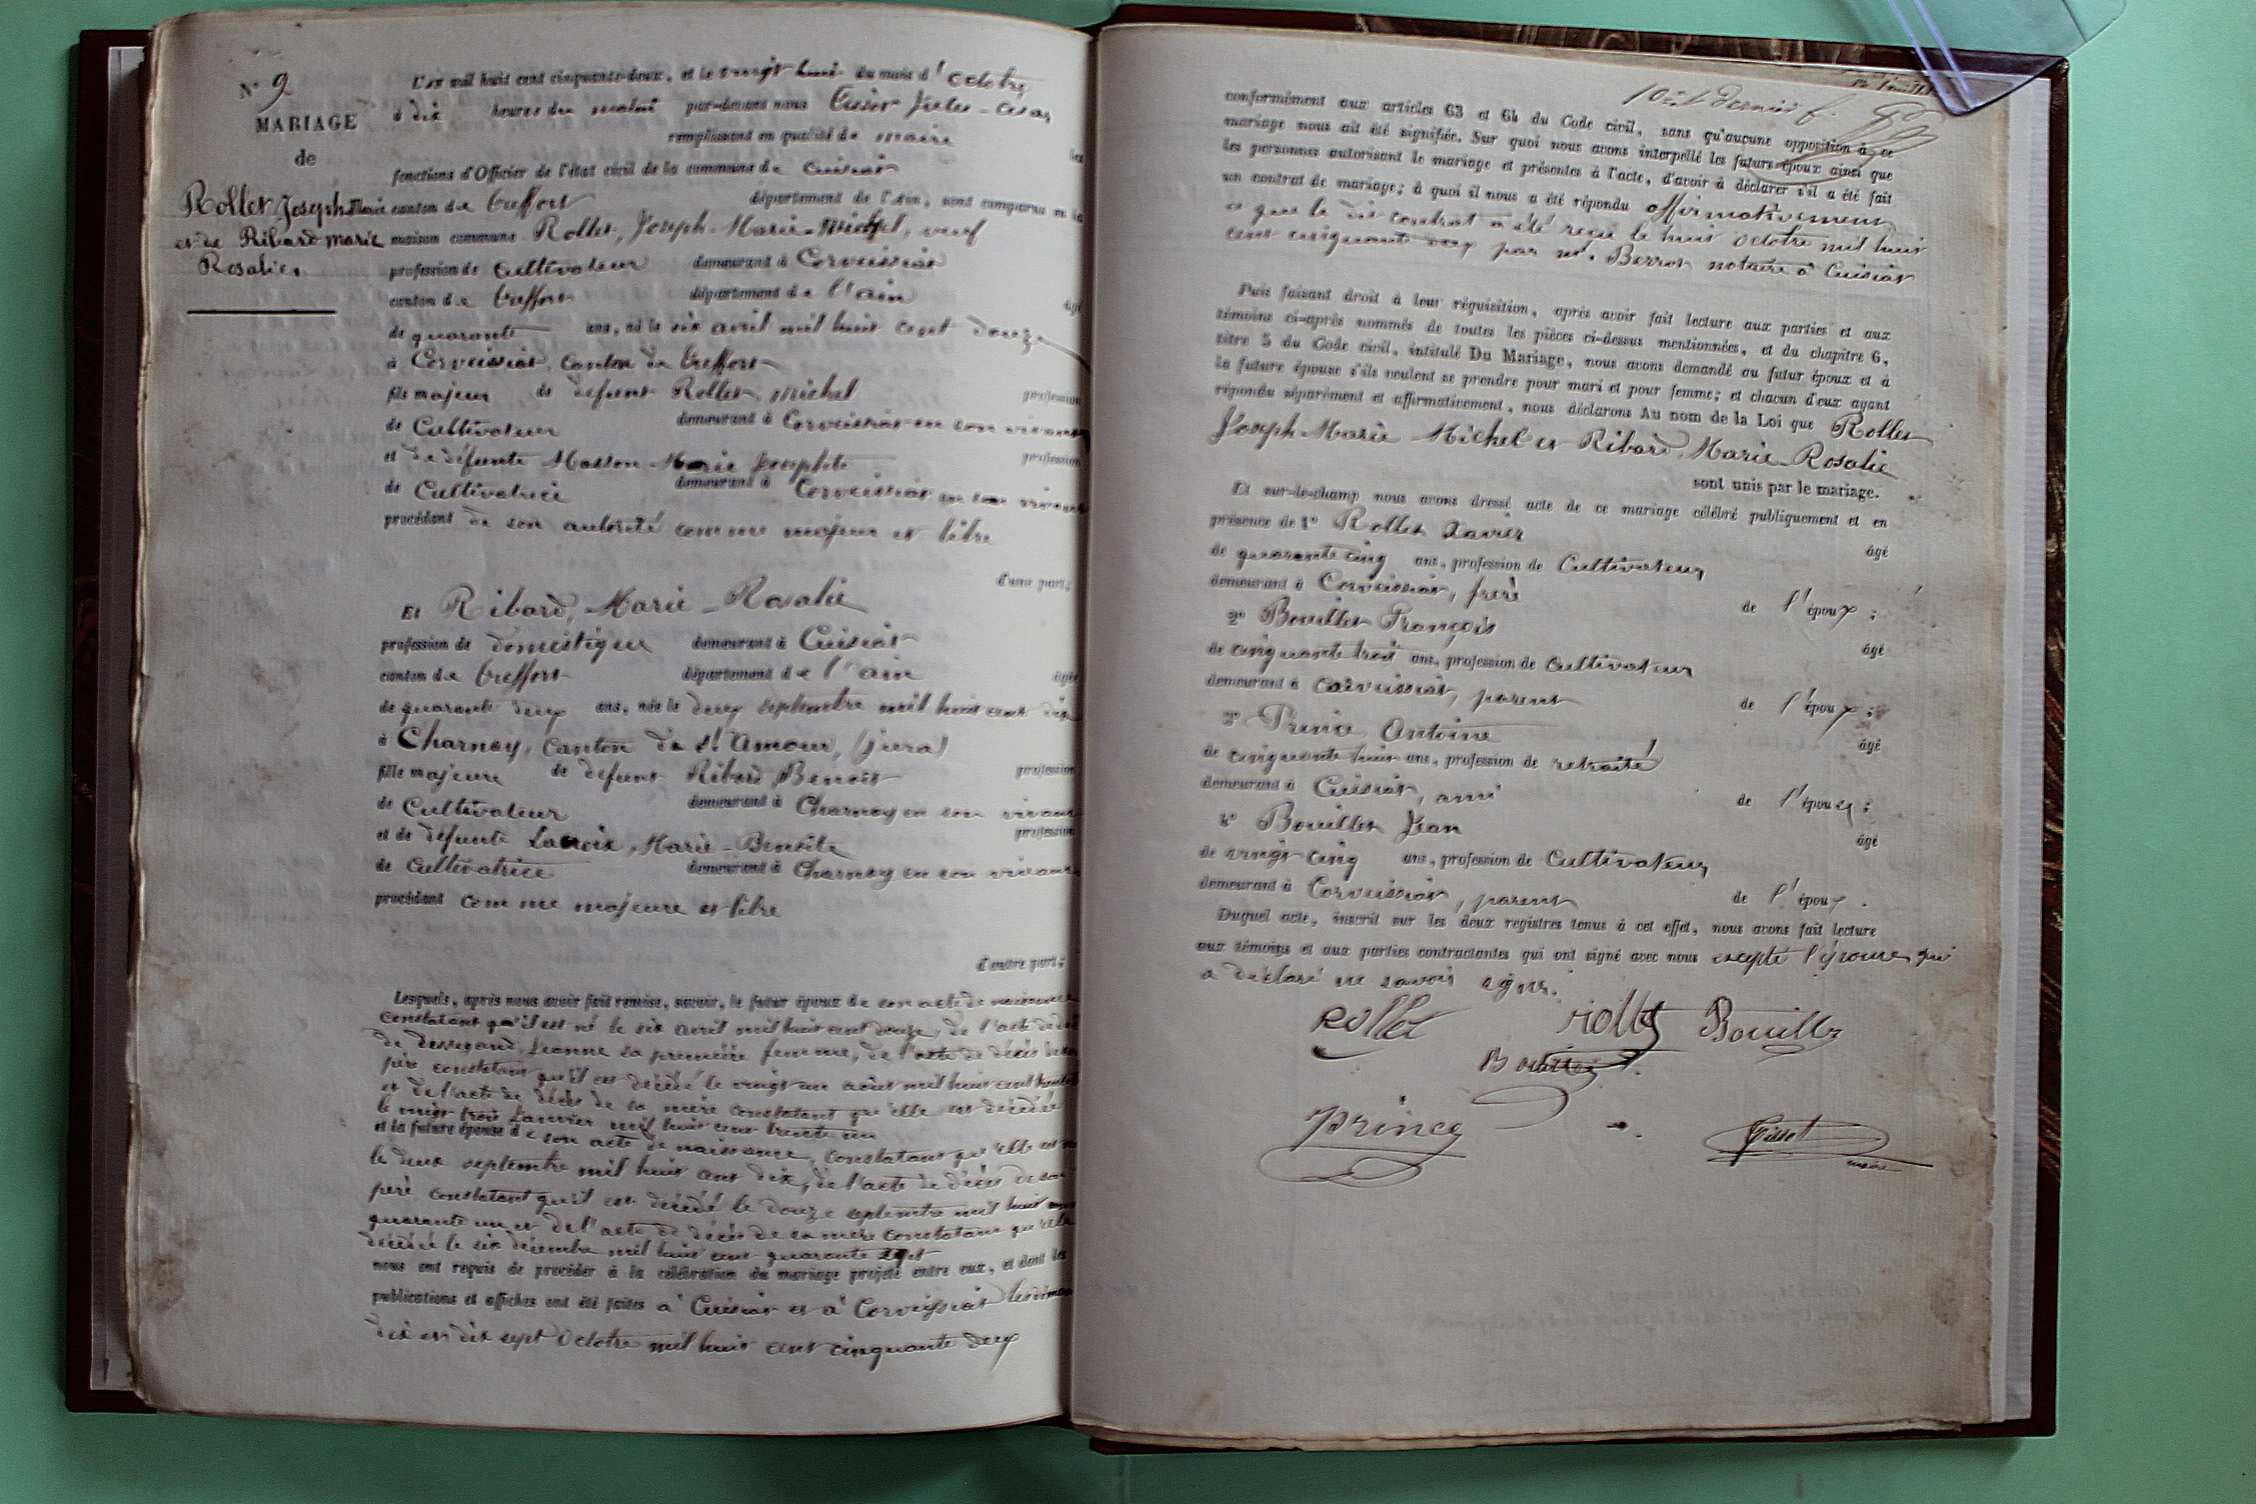 N° 9
MARIAGE
de
Rollet Joseph Marie
et de Ribard Marie
Rosalie.
L'an mil huit cent cinquante-deux, et le vingt huit du mois d'Octobre
à dix heures du matin par-devant nous Tissot Jules-Cesar
remplissant en qualité de maire les
fonctions d'Officier de l'état civil de la commune de Cuisiat
canton de Treffort département de l'Ain, sont comparus en la
maison commune Rollet, Joseph-Marie-Michel, veuf
profession de Cultivateur demeurant à Corveissiat
canton de Treffort département de l'ain âgé
de quarante ans, né le six avril mil huit cent douze
à Corveissiat, Canton de Treffort
fils majeur de défunt Rollet, Michel profession
de Cultivateur demeurant à Corveissiat en son vivant
et de défunte Masson Marie Josephte profession
de Cultivatrice demeurant à Corveissiat en son vivant
procédant de son autorité comme majeur et libre
d'une part;
Et Ribard, Marie-Rosalie
profession de domestique demeurant à Cuisiat
canton de Treffort département de l'ain âgée
de quarante deux ans, née le deux septembre mil huit cent dix
à Charnay, Canton de St Amour, (jura)
fille majeure de défunt Ribard Benoit profession
de Cultivateur demeurant à Charnay en son vivant
et de défunte Lacroix, Marie-Benoite profession
de Cultivatrice demeurant à Charnay en son vivant
procédant comme majeure et libre
d'autre part;
Lesquels, après nous avoir fait remise, savoir, le futur époux de son acte de naissance
constatant qu'il est né le six avril mil huit cent douze, de l'acte de décès
de Jeanne sa première femme, de l'acte de décès de son
père constatant qu'il est décédé le vingt un août mil huit cent
et de l'acte de décès de sa mère constatant qu'elle est décédée
le vingt trois Janvier mil huit cent trente un
et la future épouse de son acte de naissance, constatant qu'elle est née
le deux septembre mil huit cent dix, de l'acte de décès de son
père constatant qu'il est décédé le douze septembre mil huit cent
quarante un et de l'acte de décès de sa mère constatant qu'elle
décédée le six décembre mil huit cent quarante sept
nous ont requis de procéder à la célébration du mariage projeté entre eux, et dont les
publications et affiches ont été faites à Cuisiat et à Corveissiat les dimanches
dix et dix sept Octobre mil huit cent cinquante deux
10e et dernier f.
conformément aux articles 63 et 64 du Code civil, sans qu'aucune opposition à ce
mariage nous ait été signifiée. Sur quoi nous avons interpellé les futurs époux ainsi que
les personnes autorisant le mariage et présentes à l'acte, d'avoir à déclarer s'il a été fait
un contrat de mariage; à quoi il nous a été répondu affirmativement
et que le dit contrat a été reçu le huit Octobre mil huit
cent cinquante deux par me. Berrot notaire à Cuisiat
Puis faisant droit à leur réquisition, après avoir fait lecture aux parties et aux
témoins ci-après nommés de toutes les pièces ci-dessus mentionnées, et du chapitre 6,
titre 5 du Code civil, intitulé Du Mariage, nous avons demandé au futur époux et à
la future épouse s'ils veulent se prendre pour mari et pour femme; et chacun d'eux ayant
répondu séparément et affirmativement, nous déclarons Au nom de la Loi que Rollet
Joseph-Marie Michel et Ribard, Marie-Rosalie
sont unis par le mariage.
Et sur-le-champ nous avons dressé acte de ce mariage célébré publiquement et en
présence de 1° Rollet Xavier âgé
de quarante cinq ans, profession de Cultivateur
demeurant à Corveissiat, frère de l'époux;
2° Bouillet François âgé
de cinquante trois ans, profession de Cultivateur
demeurant à Corveissiat, parent de l'époux;
3° Prince Antoine âgé
de cinquante huit ans, profession de retraité
demeurant à Cuisiat, ami de l'épouse;
4° Bouillet Jean âgé
de vingt-cinq ans, profession de Cultivateur
demeurant à Corveissiat, parent de l'époux.
Duquel acte, inscrit sur les deux registres tenus à cet effet, nous avons fait lecture
aux témoins et aux parties contractantes qui ont signé avec nous excepté l'épouse qui
a déclaré ne savoir signer.
Rollet rollet Bouillet
Bouillet
Prince Tissot
maire